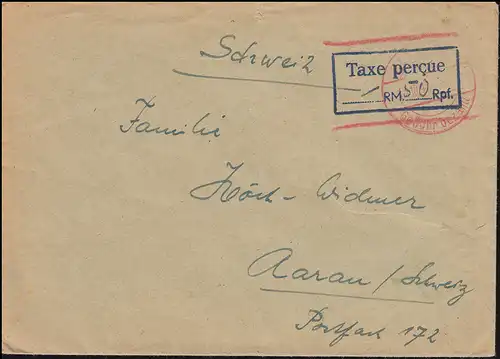 Schweiz
Taxe perçue
RM 50 Rpf.
Gebühr bezahlt
Familie
Höch-Widmer
Aarau / Schweiz
Postfach 172